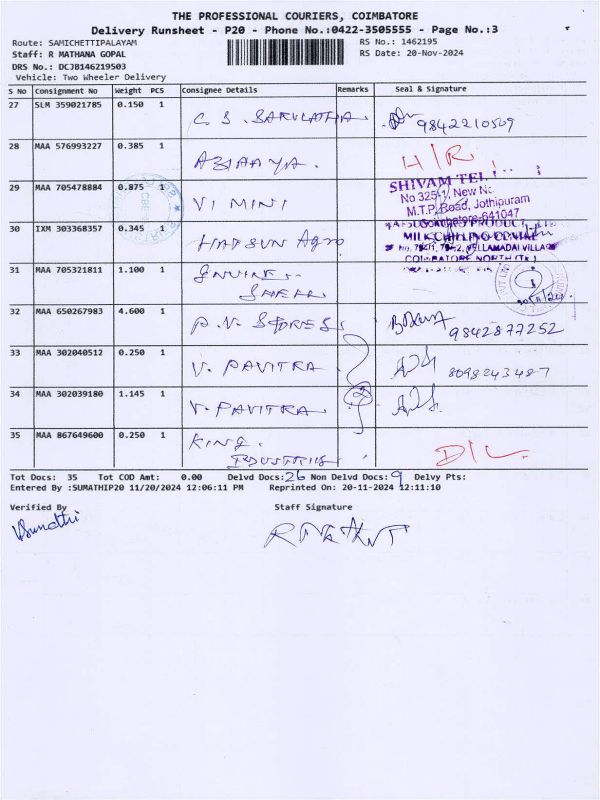 THE PROFESSIONAL COURIERS, COIMBATORE
Delivery Runsheet - P20 - Phone No.:0422-3505555 - Page No.:3
Route: SAMICHETTIPALAYAM RS No.: 1462195
Staff: R MATHANA GOPAL RS Date: 20-Nov-2024
DRS No.: DCJB146219503
Vehicle: Two Wheeler Delivery
S No Consignment No Weight PCS Consignee Details Remarks Seal & Signature
27 SLM 359021785 0.150 1 C. S. 9842210509
28 MAA 576993227 0.385 1 H/R
29 MAA 705478884 0.875 1 VI MINI
SHIVAM TEL
No 325-1, New No
M.T.P. Road, Jothipuram
Coimbatore-641047
30 IXM 303368357 0.345 1 HATSUN Agro
PRODUCT
MILK CHILLING CENTRE
VELLAMADAI VILLAGE
COIMBATORE NORTH (TK)
31 MAA 705321811 1.100 1
32 MAA 650267983 4.600 1 P.N. STORES 9842877252
33 MAA 302040512 0.250 1 V. PAVITRA 8098243487
34 MAA 302039180 1.145 1 V. PAVITRA
35 MAA 867649600 0.250 1 KING.
INDUSTRIES D/L
Tot Docs: 35 Tot COD Amt: 0.00 Delvd Docs: 26 Non Delvd Docs: 9 Delvy Pts:
Entered By :SUMATHIP20 11/20/2024 12:06:11 PM Reprinted On: 20-11-2024 12:11:10
Verified By Staff Signature
Sumathi